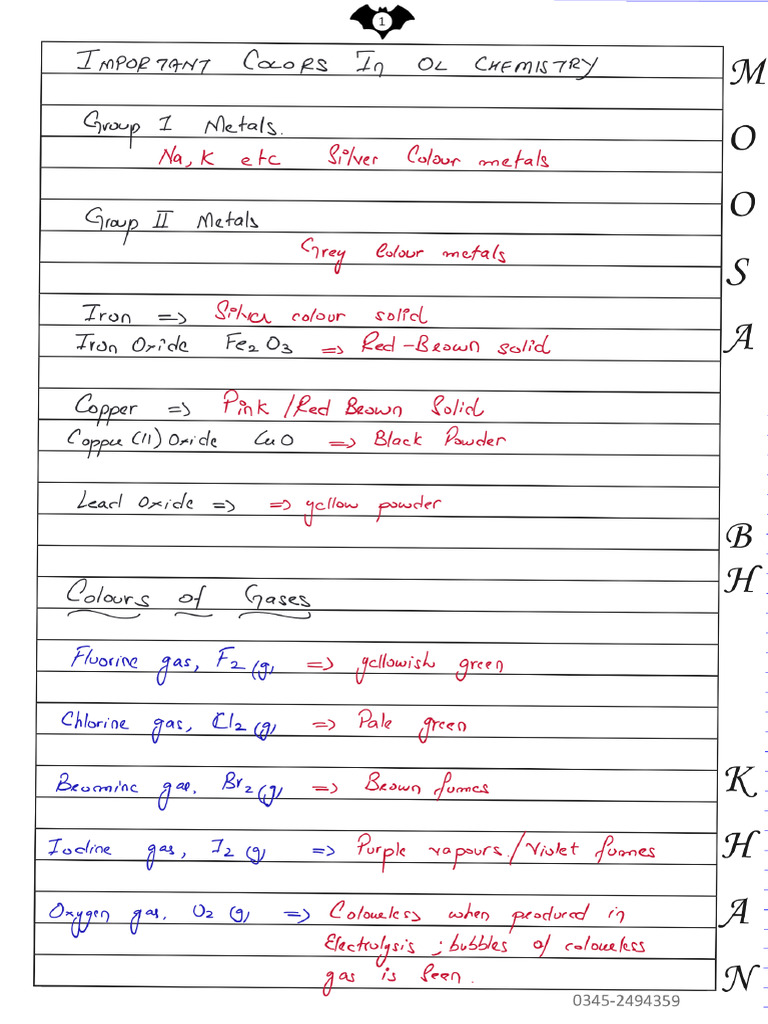 1
IMPORTANT COLORS In OL CHEMISTRY
Group I Metals.
Na, K etc Silver Colour metals
Group II Metals
Grey Colour metals
Iron => Silver colour solid
Iron Oxide Fe2O3 => Red-Brown solid
Copper => Pink /Red Brown Solid
Copper (11) Oxide CuO => Black Powder
Lead Oxide => => yellow powder
Colours of Gases
Fluorine gas, F2 (g) => yellowish green
Chlorine gas, Cl2 (g) => Pale green
Bromine gas, Br2 (g) => Brown fumes
Iodine gas, I2 (g) => Purple vapours./Violet fumes
Oxygen gas, O2 (g) => Colourless when produced in
Electrolysis ; bubbles of colourless
gas is seen.
MOOSA BHKHAN
0345-2494359